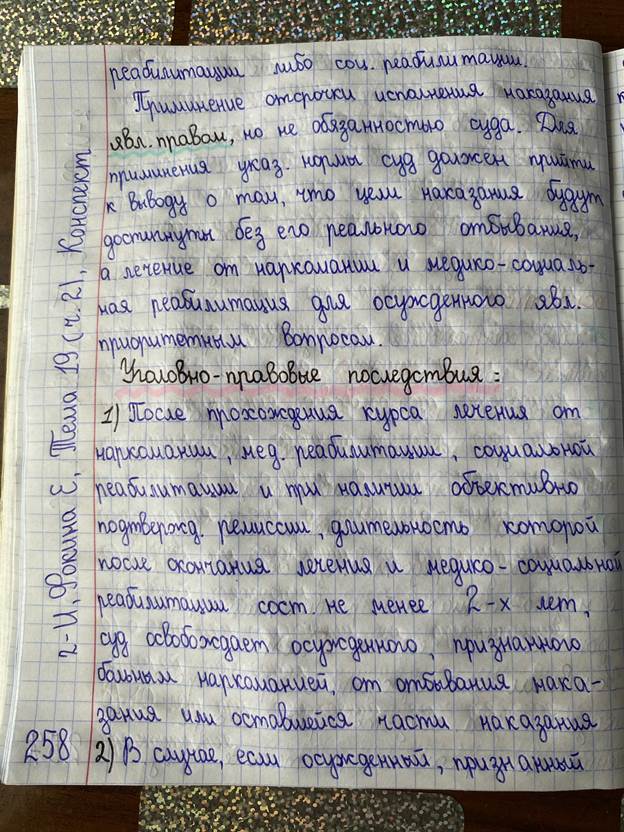 реабилитации либо соц. реабилитации.
Приминение отсрочки исполнения наказания
явл. правом, но не обязанностью суда. Для
приминения указ. нормы суд должен прийти
к выводу о том, что цели наказания будут
достигнуты без его реального отбывания,
а лечение от наркомании и медико-социаль-
ная реабилитация для осужденного явл.
приоритетным вопросом.
Уголовно-правовые последствия:
1) После прохождения курса лечения от
наркомании, мед. реабилитации, социальной
реабилитации и при наличии объективно
подтвержд. ремиссии, длительность которой
после окончания лечения и медико-социальной
реабилитации сост. не менее 2-х лет,
суд освобождает осужденного, признанного
больным наркоманией, от отбывания нака-
зания или оставшейся части наказания
2) В случае, если осужденный, признанный
258
2-И, Фокина Е, Тема 19 (ч. 2), Конспект